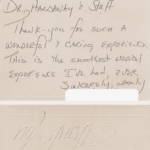 Dr. Hargavsky & Staff
Thank-you for such a
wonderful & caring experience.
This is the smoothest dental
experience I've had, ever
Sincerely,